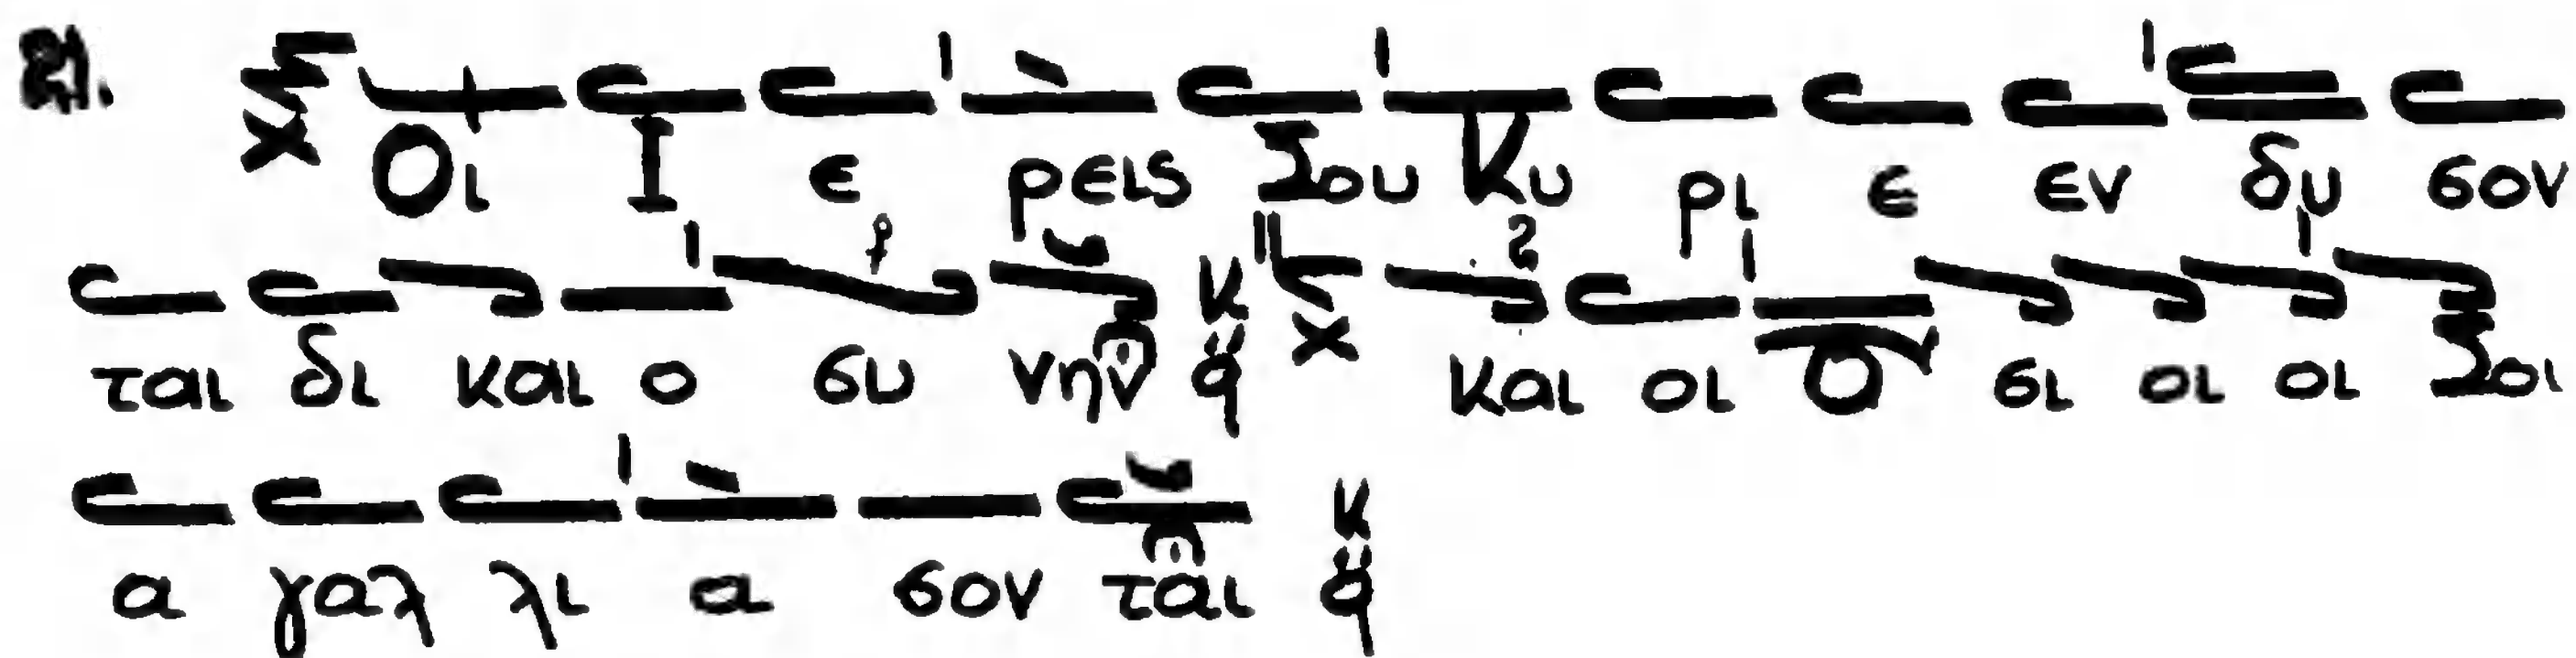 21. Οι Ι ε ρεις Σου Κυ ρι ε εν δυ σον
ται δι και ο συ νην και οι Ο σι οι οι Σοι
α γαλ λι α σον ται